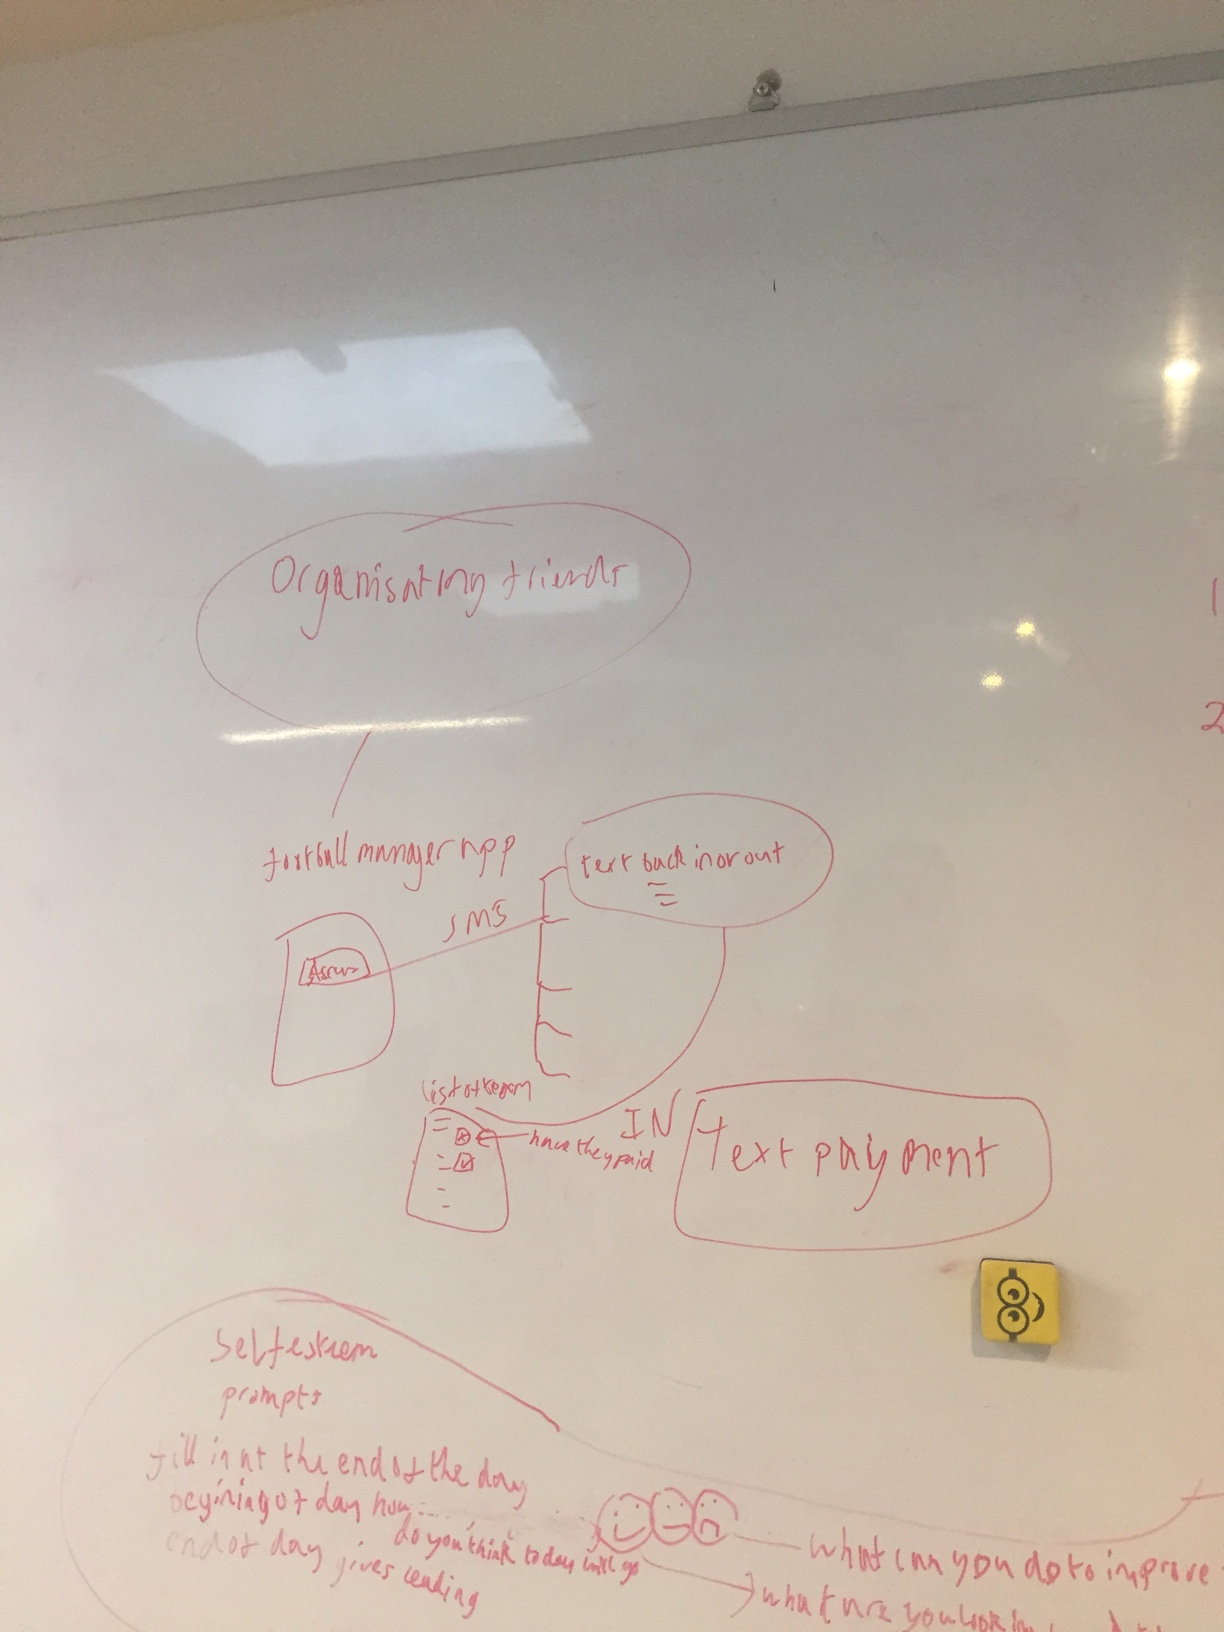 Organisating friends
football manager app
text back in or out
SMS
list of team
have they paid
IN
Text payment
1
2
Self esteem
prompts
fill in at the end of the day
begining of day how
do you think today will go
end of day gives
what can you do to improve
what are you